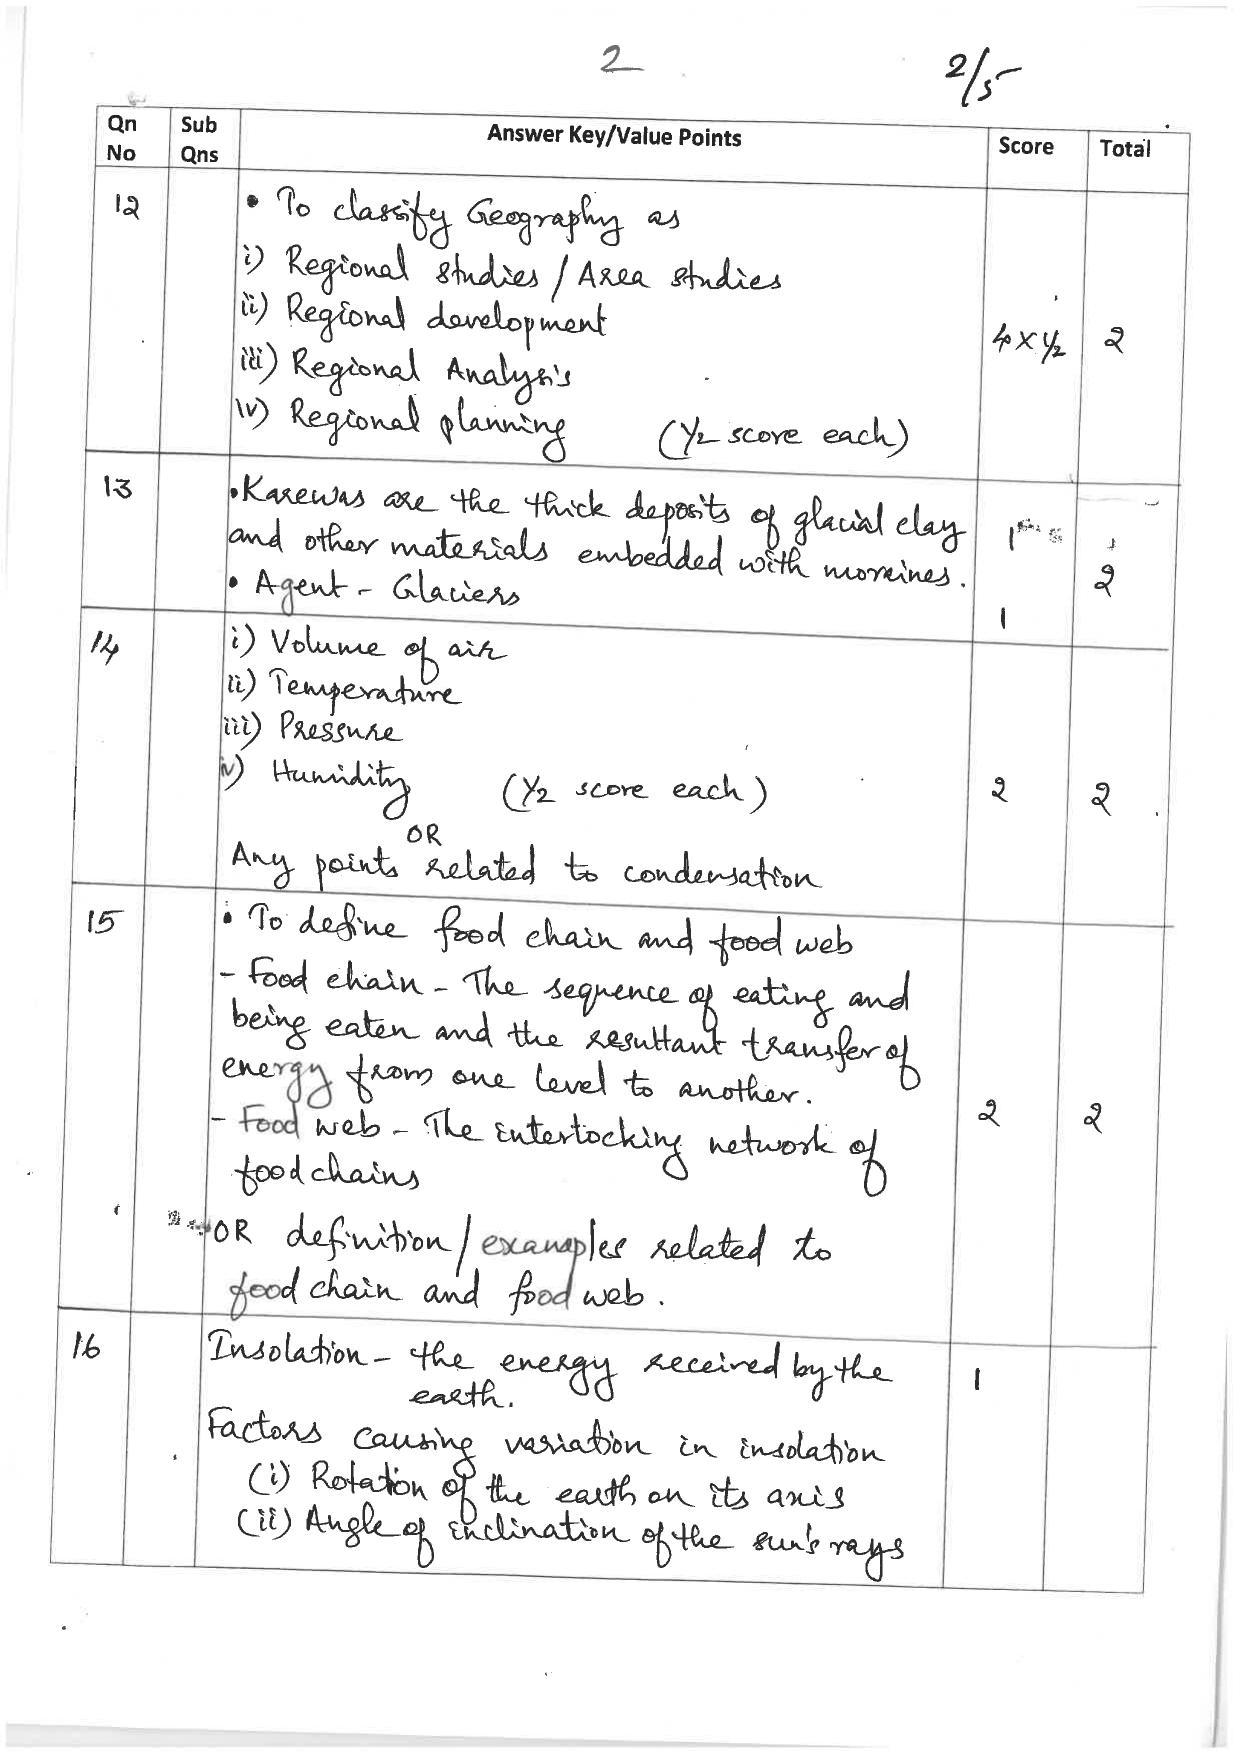 2
2/5
Qn No
Sub Qns
Answer Key/Value Points
Score
Total
12
• To classify Geography as
i) Regional studies / Area studies
ii) Regional development
iii) Regional Analysis
iv) Regional planning (½ score each)
4 x ½
2
13
• Karewas are the thick deposits of glacial clay
and other materials embedded with moraines.
• Agent - Glaciers
1
1
2
14
i) Volume of air
ii) Temperature
iii) Pressure
iv) Humidity (½ score each)
OR
Any points related to condensation
2
2
15
• To define food chain and food web
- Food chain - The sequence of eating and
being eaten and the resultant transfer of
energy from one level to another.
- Food web - The interlocking network of
food chains
OR definition / examples related to
food chain and food web.
2
2
16
Insolation - the energy received by the
earth.
Factors causing variation in insolation
(i) Rotation of the earth on its axis
(ii) Angle of inclination of the sun's rays
1